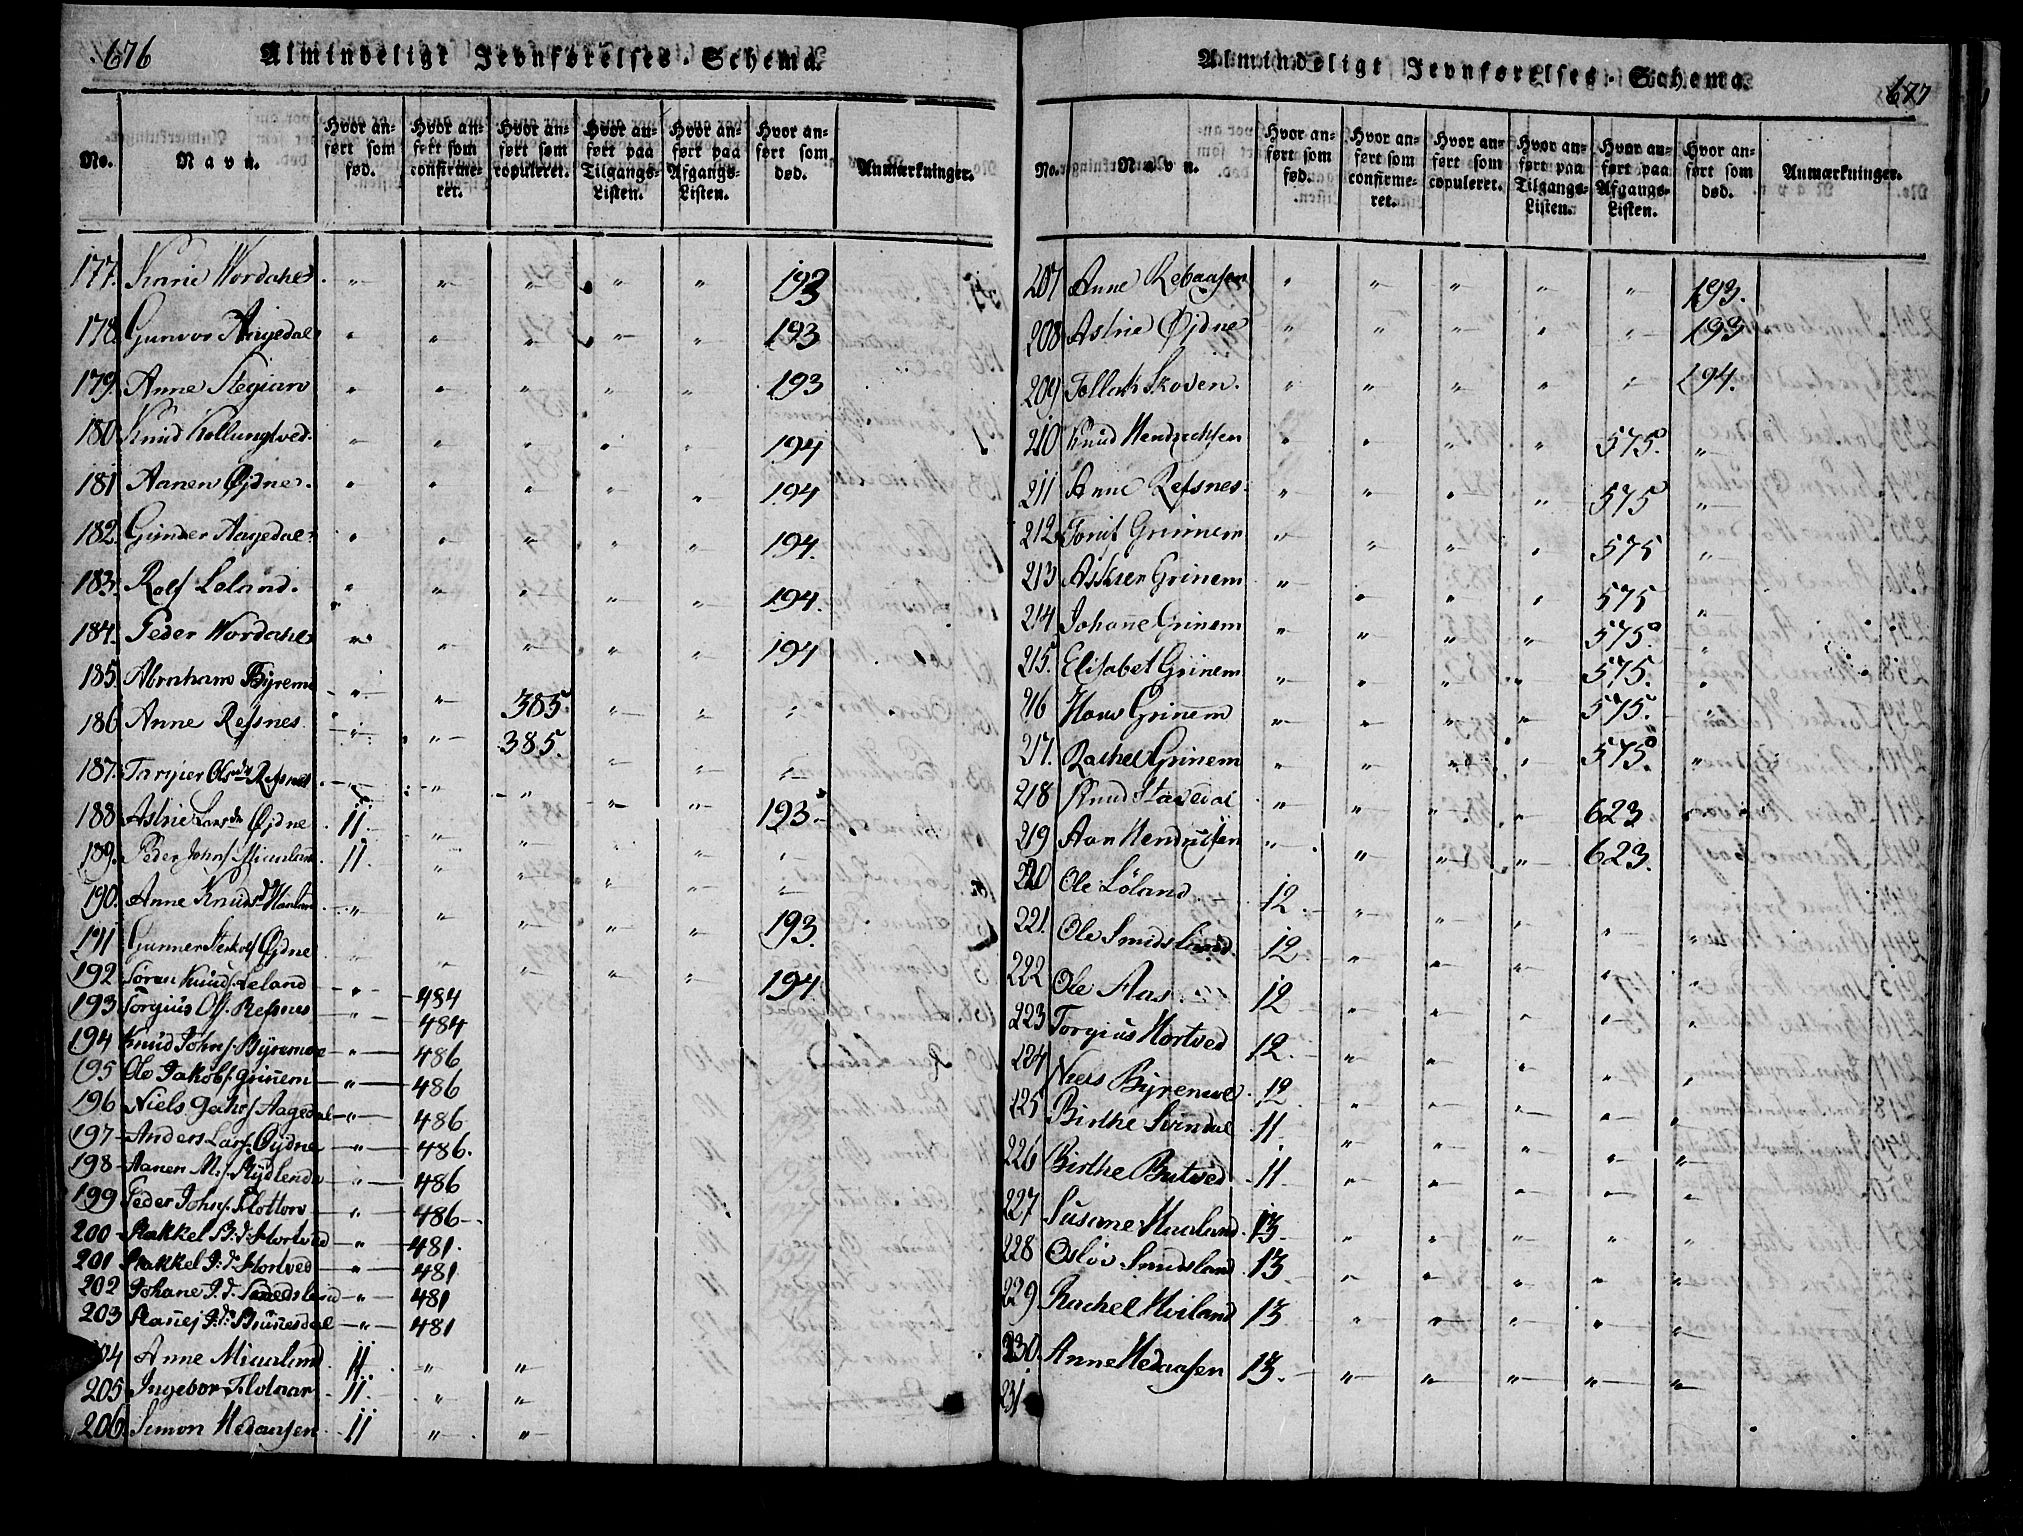 676
Almindeligt Jevnførelses-Schema.
No. Navn. Hvor anført som fød. Hvor anført som confirmeret. Hvor anført som copuleret. Hvor anført paa Tilgangs-Listen. Hvor anført paa Afgangs-Listen. Hvor anført som død. Anmærkninger.
177. Karie Hordahes " " " " " 193
178. Gunvor Aagedal " " " " " 193
179. Anne Stegian " " " " " 193
180. Knud Kollungtved. " " " " " 194
181 Aanen Øjdne. " " " " " 194
182. Gunder Aagedal. " " " " " 194.
183. Rolf Leland. " " " " " 194.
184. Peder Hordahes " " " " " 194
185. Abraham Byremo " " 385. " " "
186 Anne Refsnes. " " 385. " " "
187. Targier Olsdtr Refsnes " " " " " 193
188. Astrie Larsdr Øjdne 11. " " " " "
189. Peder Johns. Miaaland 11. " " " " "
190. Anne Knudsdr Miaaland " " " " " 193.
191 Gunner Terkels. Øjdne " " " " 194
192 Søren Knuds. Leland " 484
193 Torgius Ols. Refsnes " 484
194 Knud Johns. Byremoe " 486
195 Ole Jakobs. Grinem " 486
196 Niels Gahrs. Aagedal " 486
197 Anders Lars. Øydne " 486.
198 Aanen M.s. Rydlende " 486
199 Peder Johns. Flottorv " 486
200 Rakkel B.d. Hortved " 481.
201 Rakkel P.d. Hortved " 481
202 Johane J.d. Smedsland " 481
203 " 481
204 Anne Miaaland 11. " "
205 Ingebor Flotaar 11. " "
206 Simon Hedaasen 11 " "
677
Almindeligt Jevnførelses-Schema.
No. Navn. Hvor anført som fød. Hvor anført som confirmeret. Hvor anført som copuleret. Hvor anført paa Tilgangs-Listen. Hvor anført paa Afgangs-Listen. Hvor anført som død. Anmærkninger.
207 Anne " " " " " 193.
208 Astrie Øjdne " " " " " 193
209 Tollak Skoven. " " " " " 194.
210 Knud Hendrichsen " " " " 575. "
211 Anne Refsnes. " " " " 575 "
212 Tonis Grinnem " " " " 575 "
213 Askier Grinem " " " " 575 "
214 Johanne Grinem " " " " 575 "
215. Elisabet Grinem " " " " 575. "
216 Hans Grinem " " " " 575. "
217. Rachel Grinem " " " " 575. "
218 Knud Stavedal " " " " 623 "
219 Aan Hendricksen " " " " 623.
220 Ole Løland 12. " " " " "
221. Ole Smidsland. 12 " " " " "
222 Ole Aas 12 " " " " "
223 Torgius Hortved 12. " " " " "
224 Niels Byremoe 12 " " " " "
225 Birthe Svindal 11 " " " " "
226 Birthe Butved 11 " " " " "
227 Susanne Miaaland 13. " " " " "
228 Osløv Smidsland 13 " " " " "
229 Rachel Kviland 13 " " " " "
230. Anne Hedaasen 13. " " " " "
231